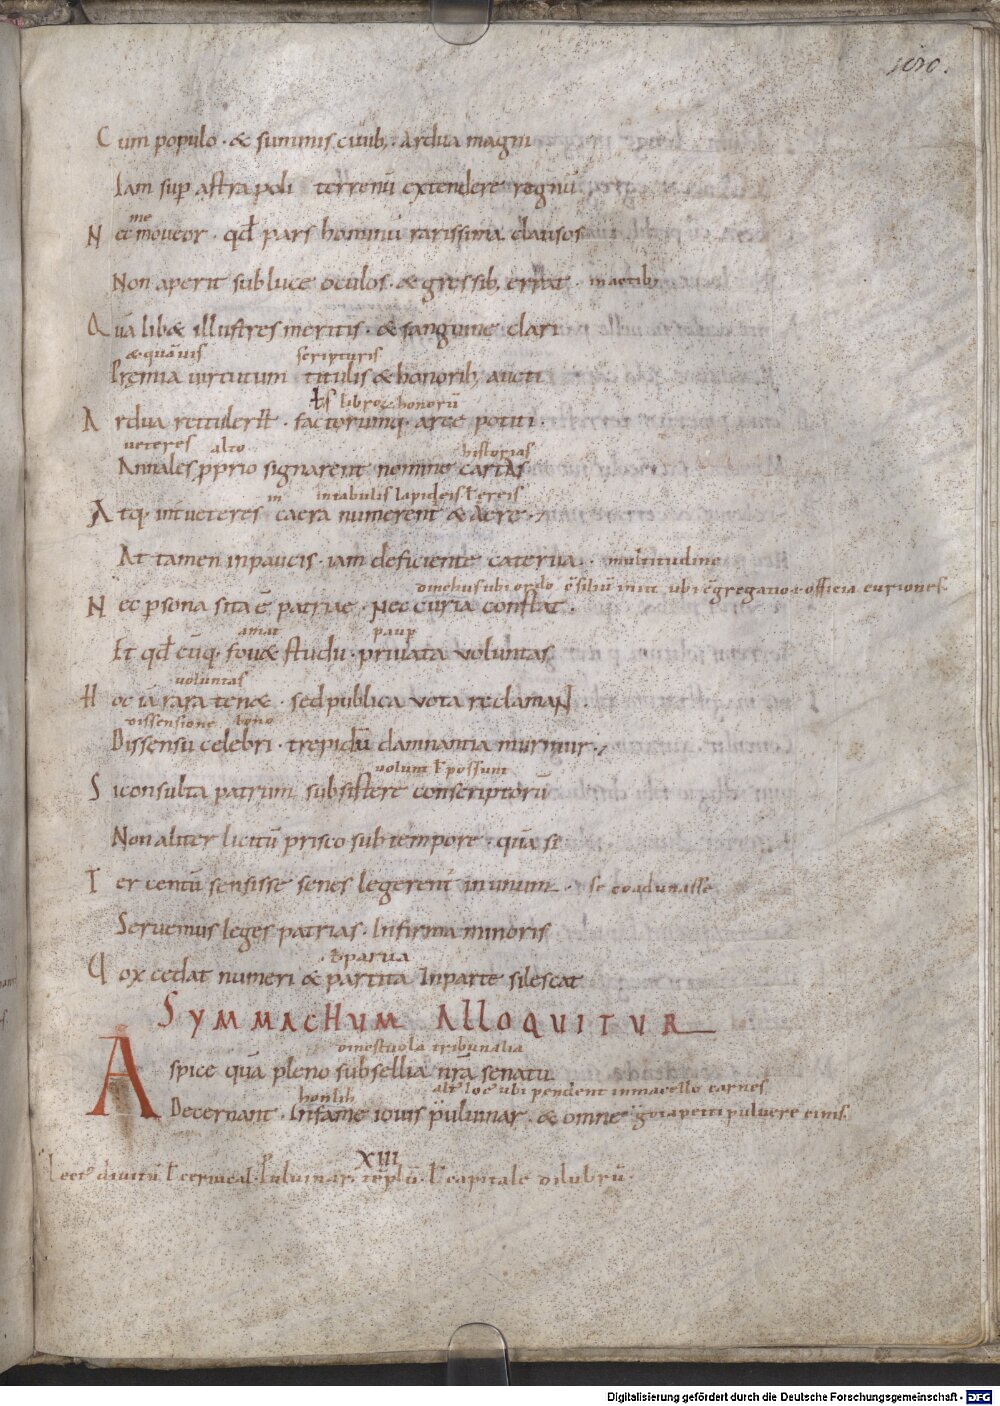 100.
Cum populo · & summis ciuib; · ardua magni
Iam sup astra poli terrenū extendere regnū
me
Nec moueor · qđ pars hominū rarissima clausos
Non aperit sub luce oculos · & gressib; errat · in actib;
Qua lib& illustres meritis · & sanguine clari
& quāuis scripturis
Premia uirtutum titulis & honorib; aucti
ł libro honorū
Ardua retulerit · factorumq; arce potiti ·
ueteres alto historias
Annales pprio signarent nomine cartas
in in tabulis lapideis ł ereis
Atq; int ueteres caera numerent & aere ·
At tamen in paucis · iam deficiente caterua · multitudine
Nec psona sita ē patriae · Nec curia constat ·
amat paup
Et qđ cūq; fou& studii · priuata uoluntas
uoluntas
Hoc iā rara ten& · sed publica uota reclamaNt
dissensione bono
Dissensu celebri · trepidū damnantia murmur ·
uolunt ł possunt
Si consulta patrum subsistere conscriptorū
Non aliter licitū prisco sub tempore · quā si
Ter centū sensisse senes legerent in unum · se coadunasse
Seruemus leges patrias · Infirma minoris
ł parua
Uox cedat numeri & partita In parte silescat
SYMMACHUM ALLOQUITUR
tribunalia
Aspice quā pleno subsellia nr̄a senatu
ubi pendent in macello carnes
Decernant · Infame iouis puluinar · & omne
XIII
diuitū ł ceruical · Puluinar templū · ł capitale dilubrū ·
Digitalisierung gefördert durch die Deutsche Forschungsgemeinschaft - DFG